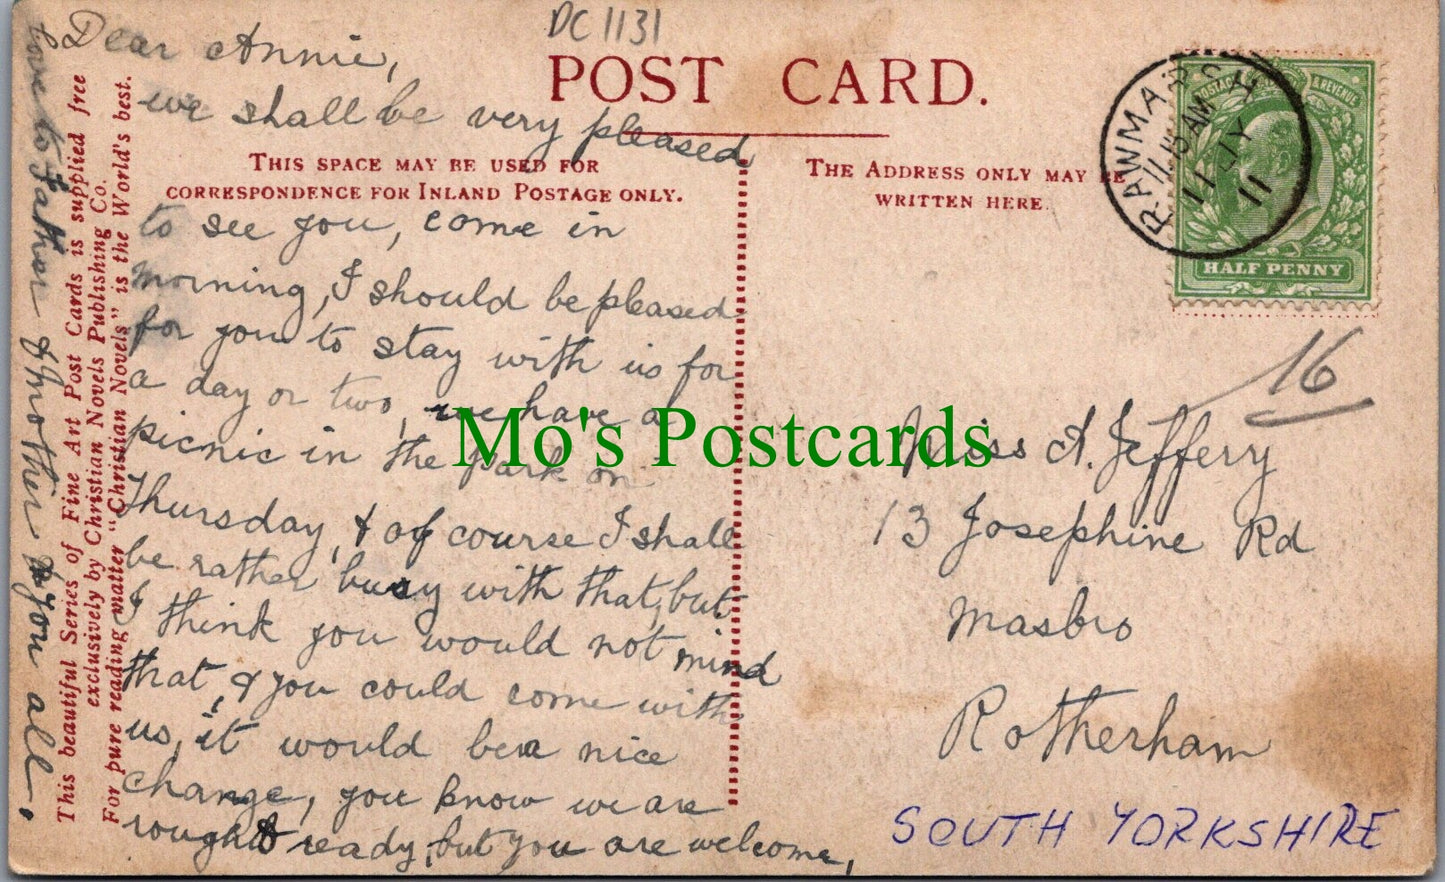 DC 1131
POST CARD.
THIS SPACE MAY BE USED FOR
CORRESPONDENCE FOR INLAND POSTAGE ONLY.
THE ADDRESS ONLY MAY BE
WRITTEN HERE.
Dear Annie,
we shall be very pleased
to see you, come in
morning, I should be pleased
for you to stay with us for
a day or two, we have a
picnic in the park on
Thursday, & of course I shall
be rather busy with that, but
I think you would not mind
that, & you could come with
us, it would be a nice
change, you know we are
rough & ready, but you are welcome,
love to Father & Mother & you all.
This beautiful Series of Fine Art Post Cards is supplied free
exclusively by Christian Novels Publishing Co.
For pure reading matter "Christian Novels" is the World's best.
RAWMARSH
11.15 AM
11 JY
11
POSTAGE & REVENUE
HALF PENNY
16
Miss A. Jeffery
13 Josephine Rd
Masbro
Rotherham
SOUTH YORKSHIRE
Mo's Postcards